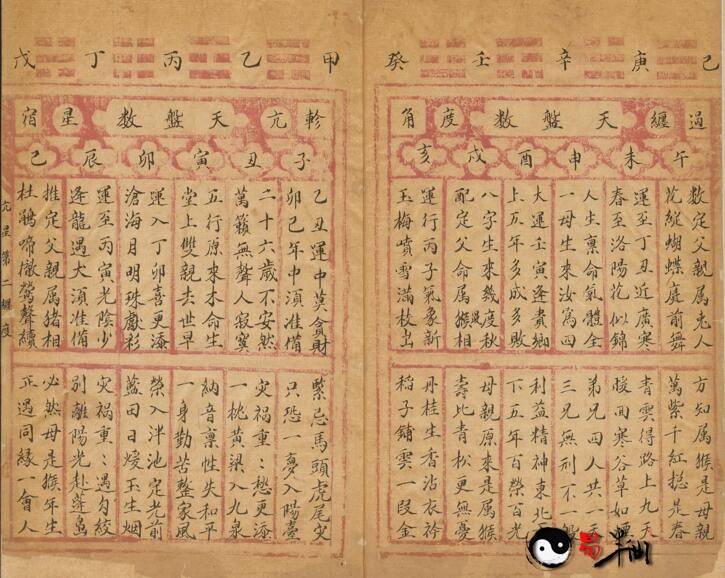 己 庚 辛 壬 癸
過 纏 天 盤 數 度 角
午 未 申 酉 戌 亥
數定父親屬 人
花綻蝴蝶庭前舞
運至丁丑近廣寒
春至洛陽花似錦
人生稟命氣體全
一母生來汝為四
大運壬寅逢貴鄉
上五年多成多敗
八字生來幾度秋
配定父命屬猴相
運行丙子氣象新
玉梅噴雪滿枝上
方知屬猴是母親
萬紫千紅總是春
青雲得路上九天
暖回寒谷草如
弟兄四人共一
三兄無刑不一
利益精神東北
下五年百榮百光
母親原來是屬猴
壽比青松更無憂
丹桂生香沾衣衿
稻子鋪雲一段金
甲 乙 丙 丁 戊
軫 亢 天 盤 數 星 宿
子 丑 寅 卯 辰 巳
乙丑運中莫貪財
卯己年中須准備
二十六歲不安然
萬籟無聲人寂寞
五行原來木命生
堂上雙親去世早
運入丁卯喜更添
滄海月明珠獻彩
運至丙寅光陰少
逢龍遇犬須准備
推定父親属猪相
杜鵑啼徹鶯聲續
緊忌馬頭虎尾災
只恐一夢入陽臺
災禍重〻愁更添
一桃黃梁入九泉
納音稟性失和平
一身勤苦整家風
榮入泮池定光前
藍田日煖玉生烟
灾禍重〻遇勾絞
別離陽光赴蓬島
必然母是猴年生
正遇同緣一會人
亢星第二纏度
易